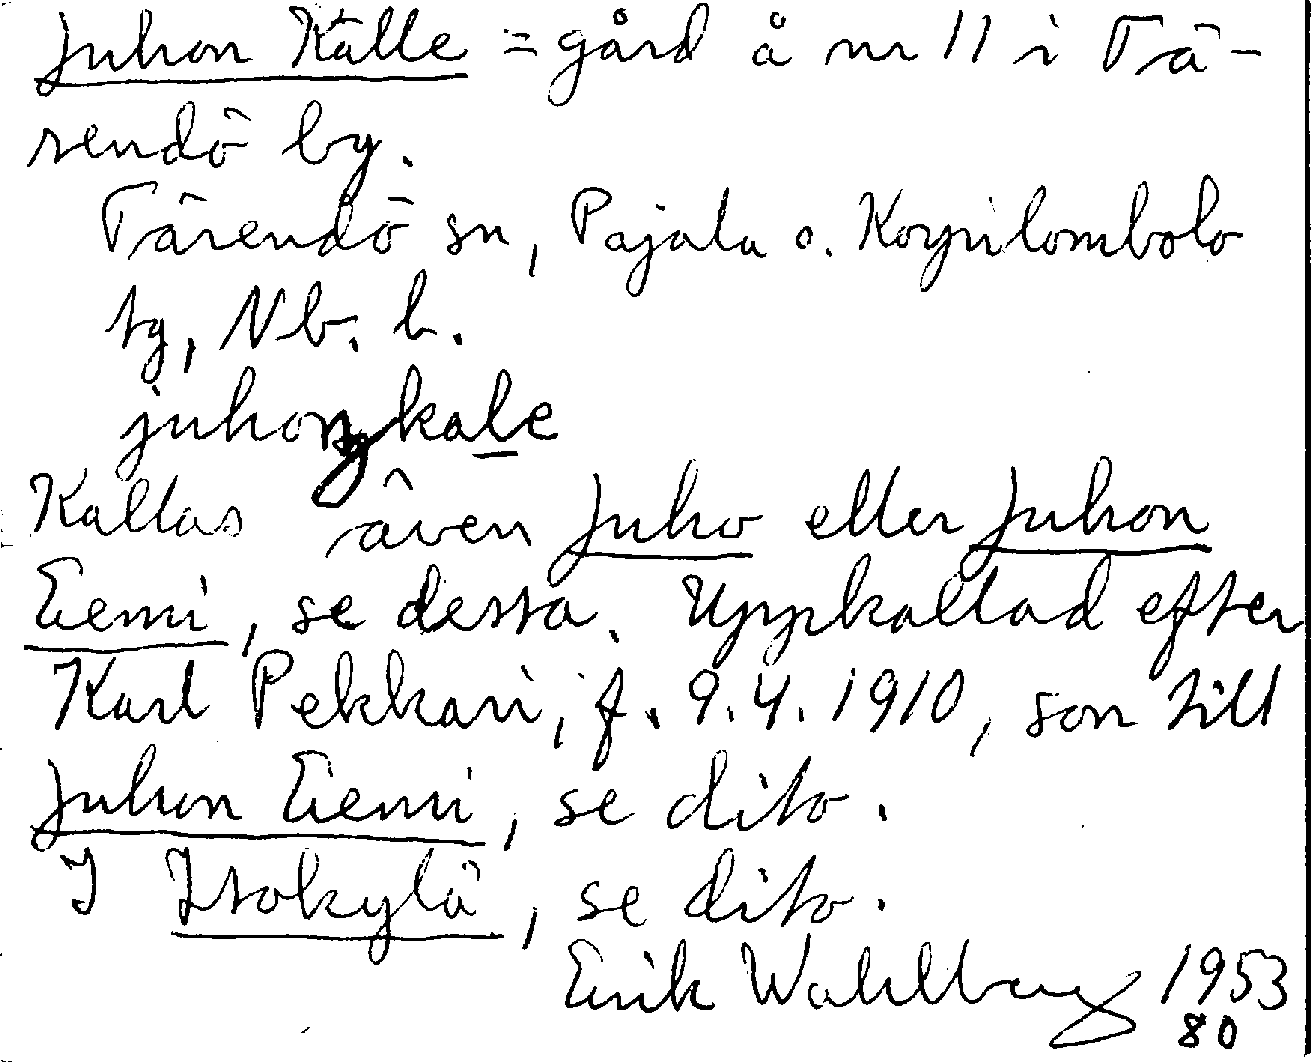 Juhon Kalle = gård å nr 11 i Tä-
rendö by.
Tärendö sn, Pajala o. Korpilombolo
tg, Nb. l.
juhoŋkale
Kallas även Juho eller Juhon
Eemi, se dessa. Uppkallad efter
Karl Pekkari, f. 9.4.1910, son till
Juhon Eemi, se dito.
I Isokylä, se dito.
Erik Wahlberg 1953
80